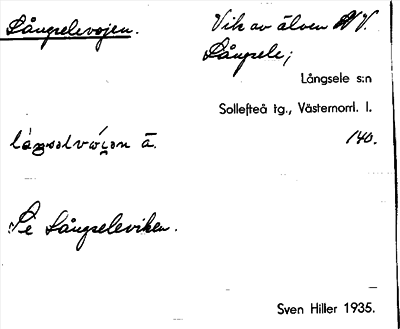 Långselevojen.
Vik av älven N V.
Långsele;
Långsele s:n
Sollefteå tg., Västernorrl. l.
140.
Se Långseleviken.
Sven Hiller 1935.